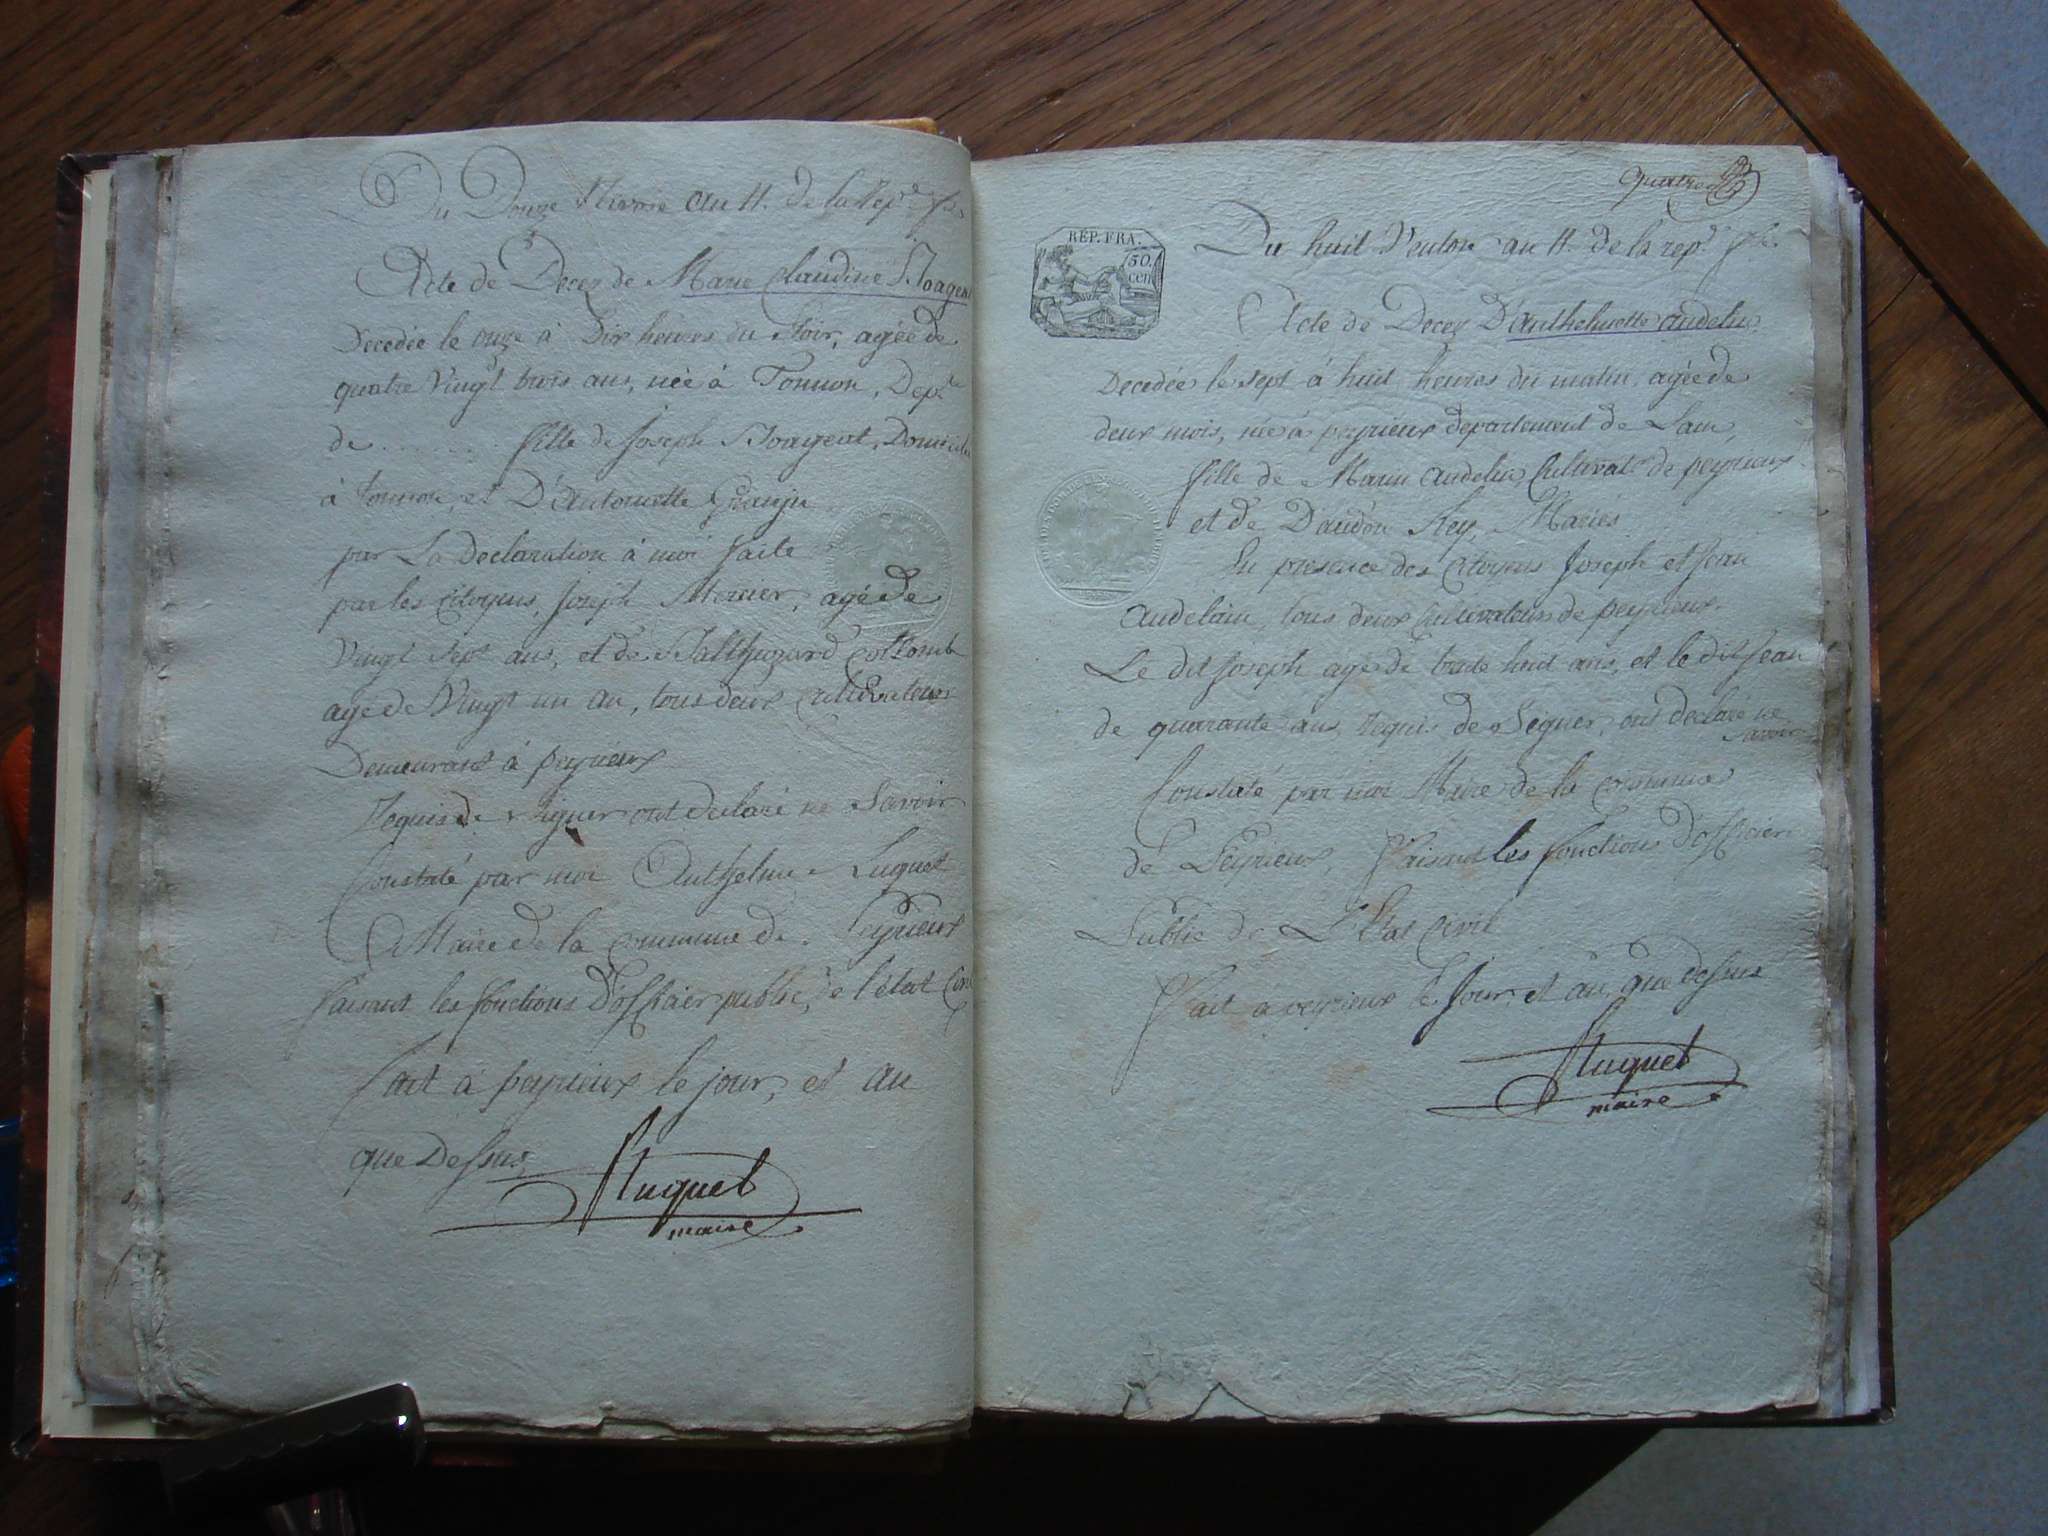 Du Douze Nivose an 11. de la Rep.e f.se
Acte de Decez de Marie Claudine
Decedée le onze à Dix heures du Soir, agée de
quatre Vingt trois ans, née à Tonnon, Dep.te
de ........ fille de Joseph
à Tonnon, et D'antoinette
par La declaration à moi faite
par les Citoyens, Joseph Mercier, agé de
Vingt Sept ans, et de Balthazard Collomb
agé de Vingt un an, tous deux Cultivateurs
Demeurant à peyrieux
Requis de Signer ont declaré ne Savoir
Constaté par moi Anthelme Luquet
Maire de la Commune de Peyrieux
faisant les fonctions D'officier public, de l'état Civil
Fait à peyrieux le jour, et an
que Dessus,
Luquet
maire
quatre
RÉP. FRA.
50.
cen
Du huit Ventose an 11. de la rep.e f.se
Acte de Decez D'anthelmette andelin
Decedée le sept à huit heures du matin, agée de
deux mois, née à peyrieux departement de Lain,
fille de Marin andelin Cultivat.r de peyrieux
et de Daudon Rey, Mariés
En presence des Citoyens Joseph et Jean
andelain, tous deux Cultivateurs de peyrieux.
Le dit Joseph agé de trente huit ans, et le dit Jean
de quarante ans, requis de Signer, ont declaré ne
savoir
Constaté par moi Maire de la Commune
de Peyrieux, faisant les fonctions d'officier
Public de L'Etat Civil
Fait à peyrieux le Jour, et an, que dessus
Luquet
maire